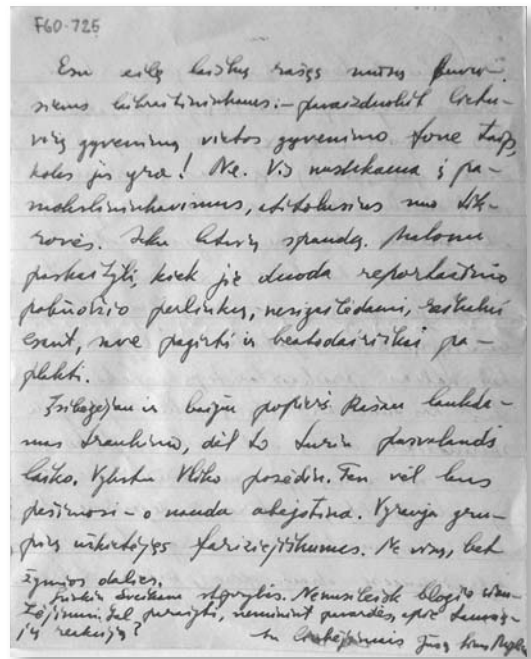 F60-725
Esu eilę laiškų rašęs mūsų buvu-
siems laikraštininkams: – pavaizduokit lietu-
vių gyvenimą vietos gyvenimo fone taip,
koks jis yra! Ne. Vis nusukama į pa-
mokslininkavimus, atitolusius nuo tik-
rovės. Seku latvių spaudą. Malonu
paskaityti, kiek jie duoda reportažinio
pobūdžio perliukų, nesigailėdami, reikalui
esant, save pagirti ir beatodairiškai pa-
plakti.
Įsibėgėjau ir baigiu popierį. Rašau laukda-
mas traukinio, dėl to turiu pusvalandį
laiko. Vykstu Vliko posėdin. Ten vėl bus
pešimosi – o nauda abejotina. Vyrauja gru-
pių užkietėjęs fariziejiškumas. Ne visų, bet
žymios dalies.
Linkiu sveikam stiprybės. Nenusileisk blogio
Gal parašyti, neminint pavardės, apie
jų reakciją?
Su linkėjimais Jūsų